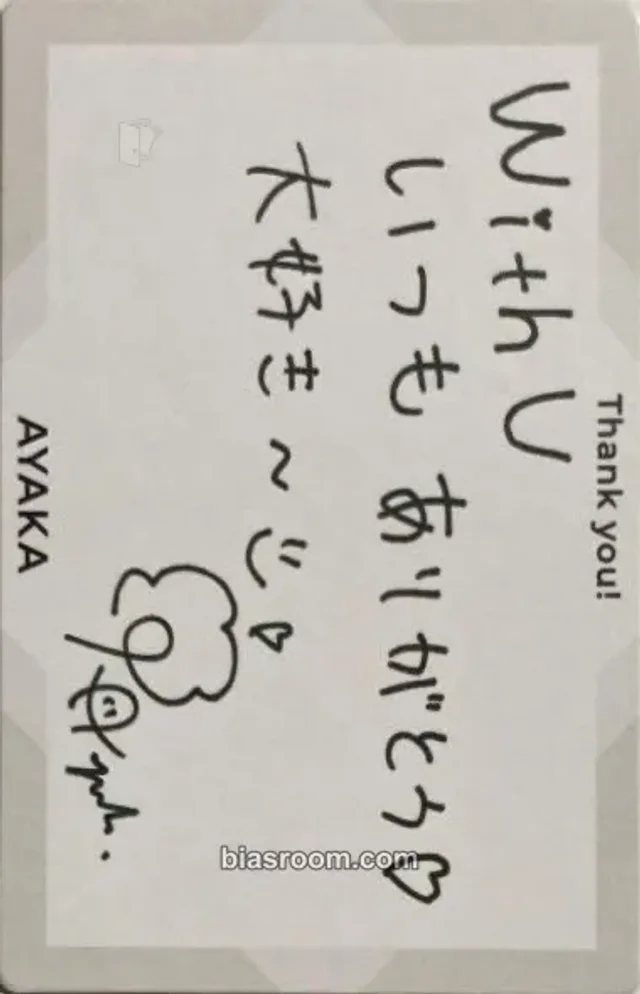 Thank you!
With U
いつもありがとう♡
大好き〜
AYAKA
biasroom.com